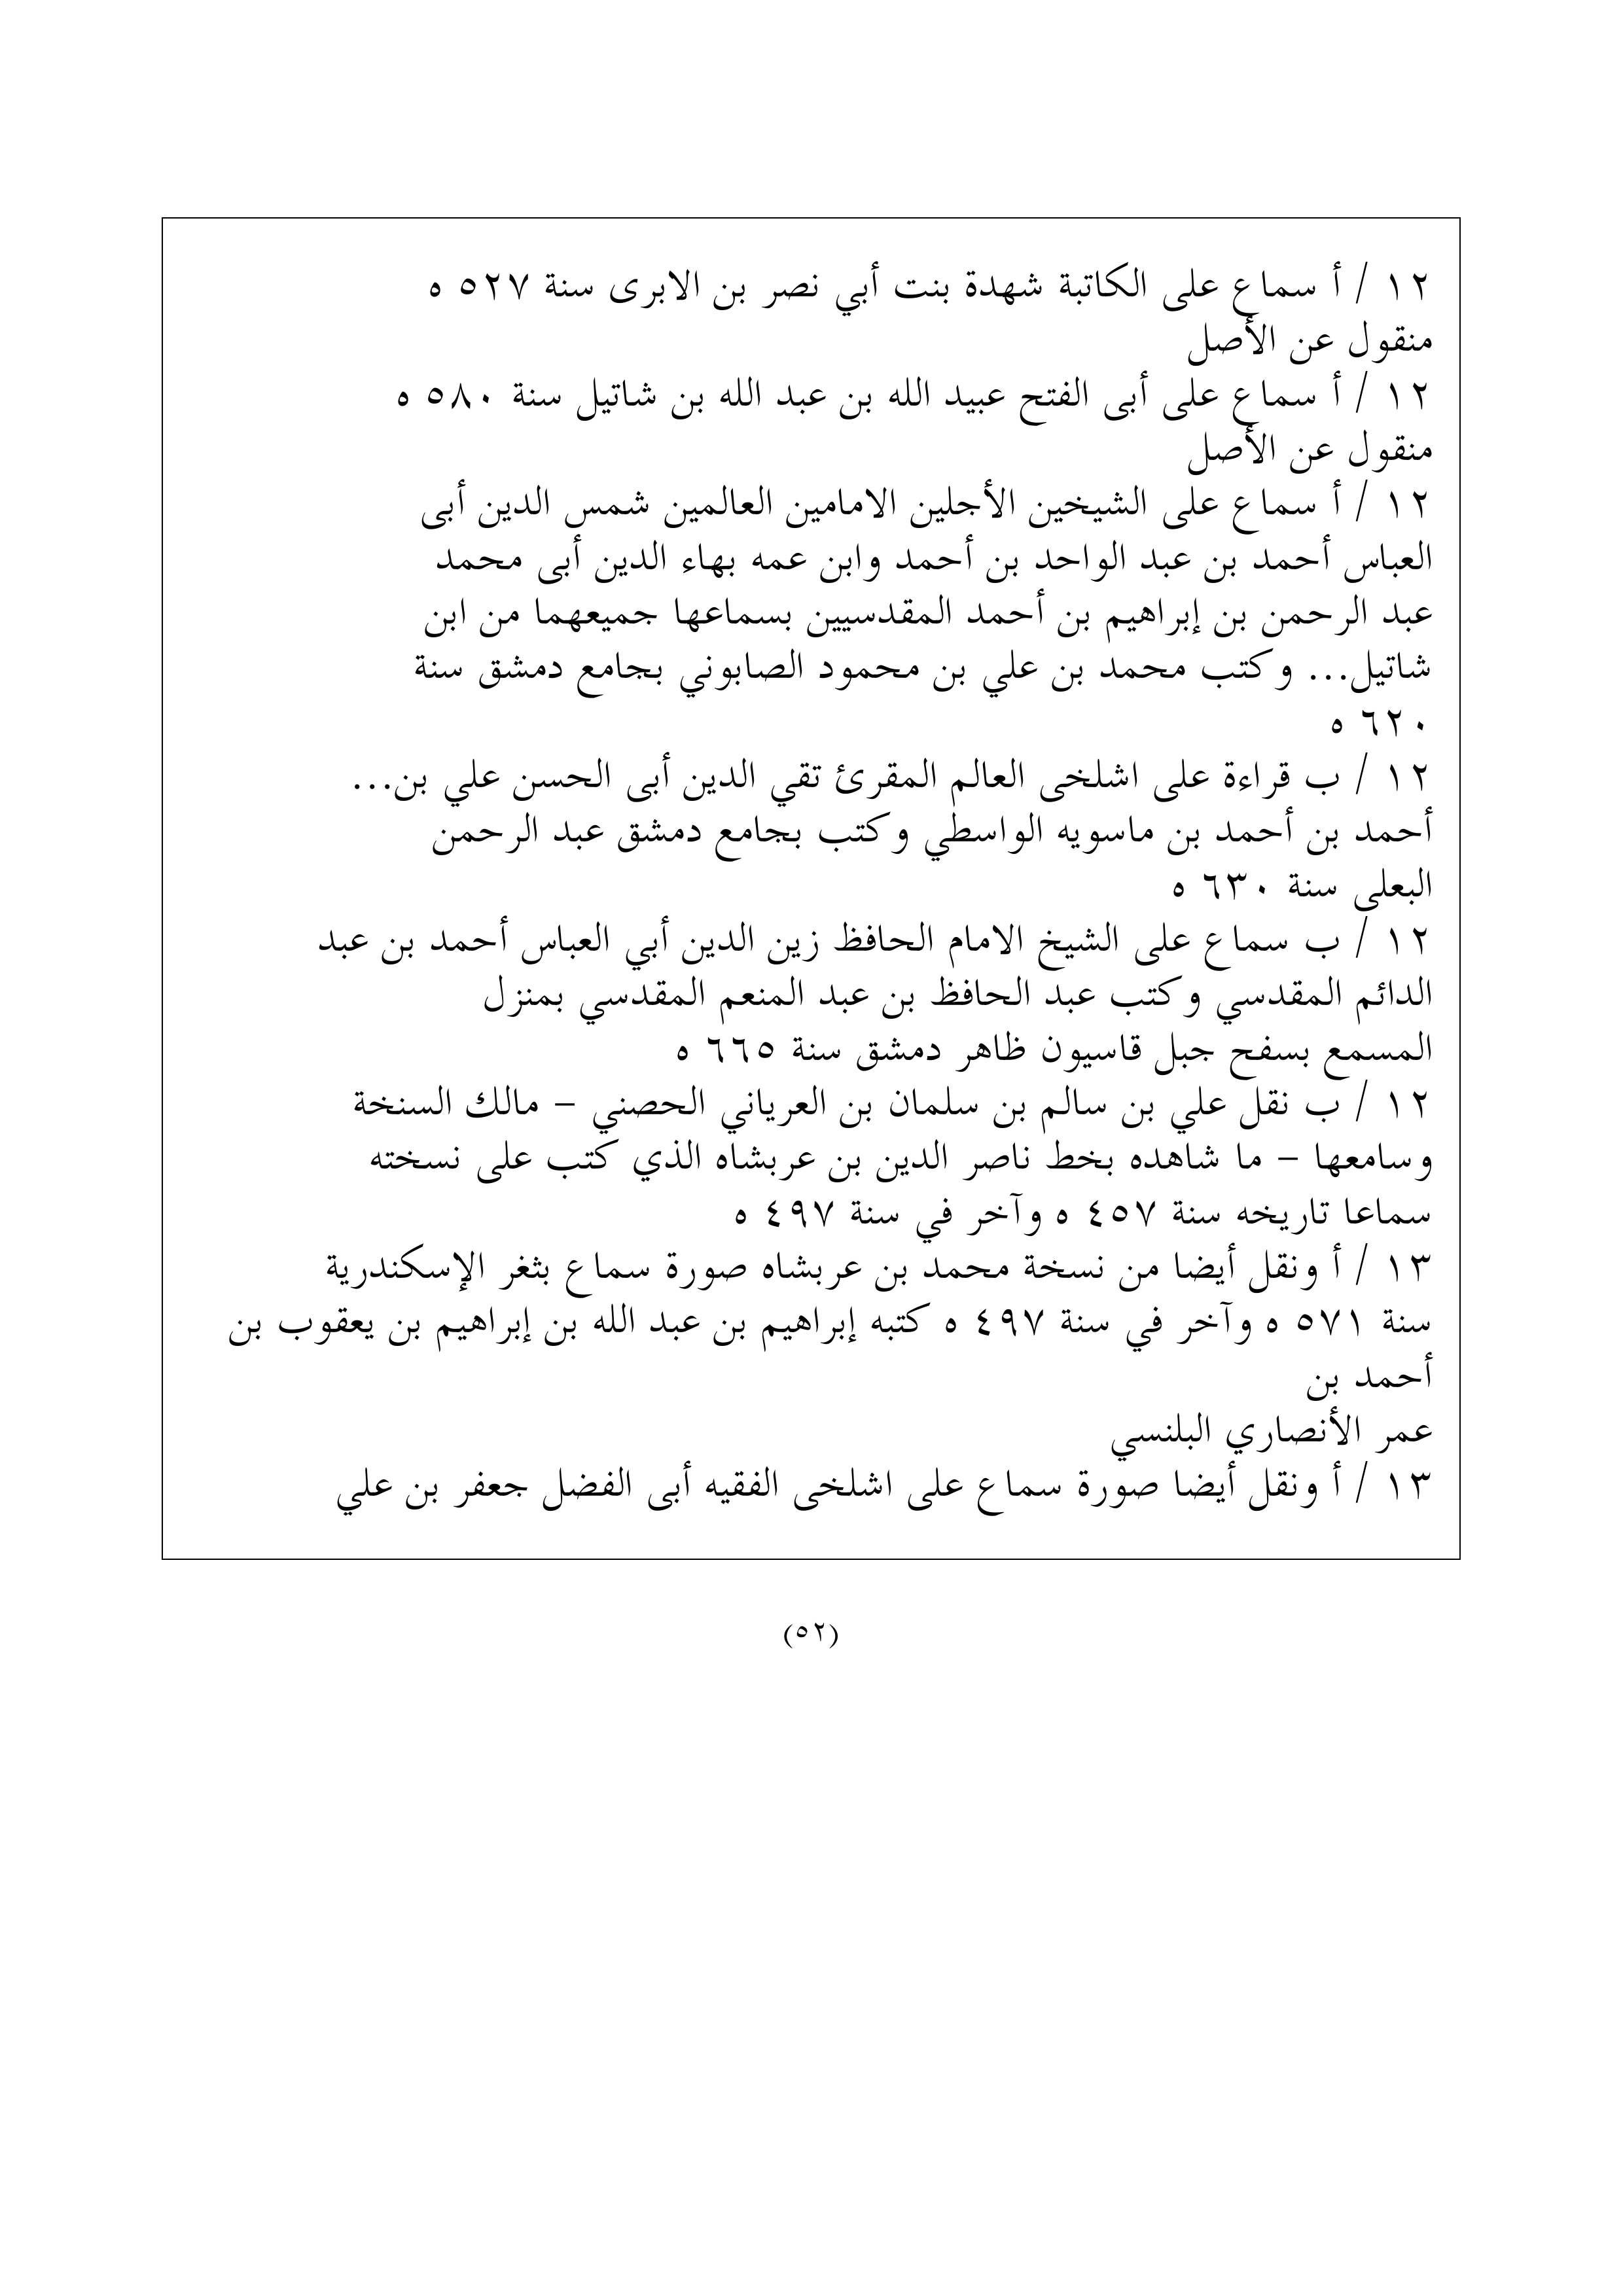 ١٢ / أ سماع على الكاتبة شهدة بنت أبي نصر بن الابرى سنة ٥٢٧ ه
منقول عن الأصل
١٢ / أ سماع على أبى الفتح عبيد الله بن عبد الله بن شاتيل سنة ٥٨٠ ه
منقول عن الأصل
١٢ / أ سماع على الشيخين الأجلين الامامين العالمين شمس الدين أبى
العباس أحمد بن عبد الواحد بن أحمد وابن عمه بهاء الدين أبى محمد
عبد الرحمن بن إبراهيم بن أحمد المقدسيين بسماعها جميعهما من ابن
شاتيل... وكتب محمد بن علي بن محمود الصابوني بجامع دمشق سنة
٦٢٠ ه
١٢ / ب قراءة على اشلخى العالم المقرئ تقي الدين أبى الحسن علي بن...
أحمد بن أحمد بن ماسويه الواسطي وكتب بجامع دمشق عبد الرحمن
البعلى سنة ٦٣٠ ه
١٢ / ب سماع على الشيخ الامام الحافظ زين الدين أبي العباس أحمد بن عبد
الدائم المقدسي وكتب عبد الحافظ بن عبد المنعم المقدسي بمنزل
المسمع بسفح جبل قاسيون ظاهر دمشق سنة ٦٦٥ ه
١٢ / ب نقل علي بن سالم بن سلمان بن العرياني الحصني - مالك السنخة
وسامعها - ما شاهده بخط ناصر الدين بن عربشاه الذي كتب على نسخته
سماعا تاريخه سنة ٤٥٧ ه وآخر في سنة ٤٩٧ ه
١٣ / أ ونقل أيضا من نسخة محمد بن عربشاه صورة سماع بثغر الإسكندرية
سنة ٥٧١ ه وآخر في سنة ٤٩٧ ه كتبه إبراهيم بن عبد الله بن إبراهيم بن يعقوب بن
أحمد بن
عمر الأنصاري البلنسي
١٣ / أ ونقل أيضا صورة سماع على اشلخى الفقيه أبى الفضل جعفر بن علي
(٥٢)